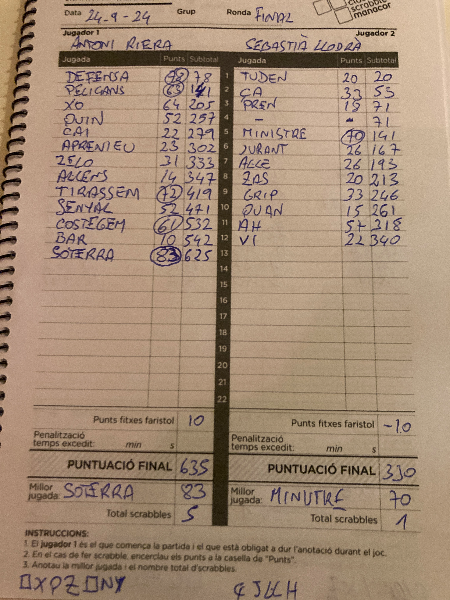 Data 24-9-24 Grup Ronda FINAL
scrabble manacor
Jugador 1 Jugador 2
ANTONI RIERA SEBASTIÀ LLODRA
Jugada Punts Subtotal Jugada Punts Subtotal
DEFENSA 78 78 1 TUDEN 20 20
PELICANS 63 141 2 CA 33 53
XO 64 205 3 PREN 18 71
QUIN 52 257 4 - - 71
CAI 22 279 5 MINISTRE 70 141
APRENIEU 23 302 6 JURANT 26 167
ZELO 31 333 7 ALCE 26 193
ALLENS 14 347 8 ZAS 20 213
TIRASSEM 72 419 9 GRIP 33 246
SENYAL 52 471 10 QUAN 15 261
COSTEGEM 61 532 11 AH 57 318
BAR 10 542 12 VI 22 340
SOTERRA 83 625 13
14
15
16
17
18
19
20
21
22
Punts fitxes faristol 10 Punts fitxes faristol -10
Penalització temps excedit: min s Penalització temps excedit: min s
PUNTUACIÓ FINAL 635 PUNTUACIÓ FINAL 330
Millor jugada: SOTERRA 83 Millor jugada: MINISTRE 70
Total scrabbles 5 Total scrabbles 1
INSTRUCCIONS:
1. El jugador 1 és el que comença la partida i el que està obligat a dur l'anotació durant el joc.
2. En el cas de fer scrabble, encerclau els punts a la casella de "Punts".
3. Anotau la millor jugada i el nombre total d'scrabbles.